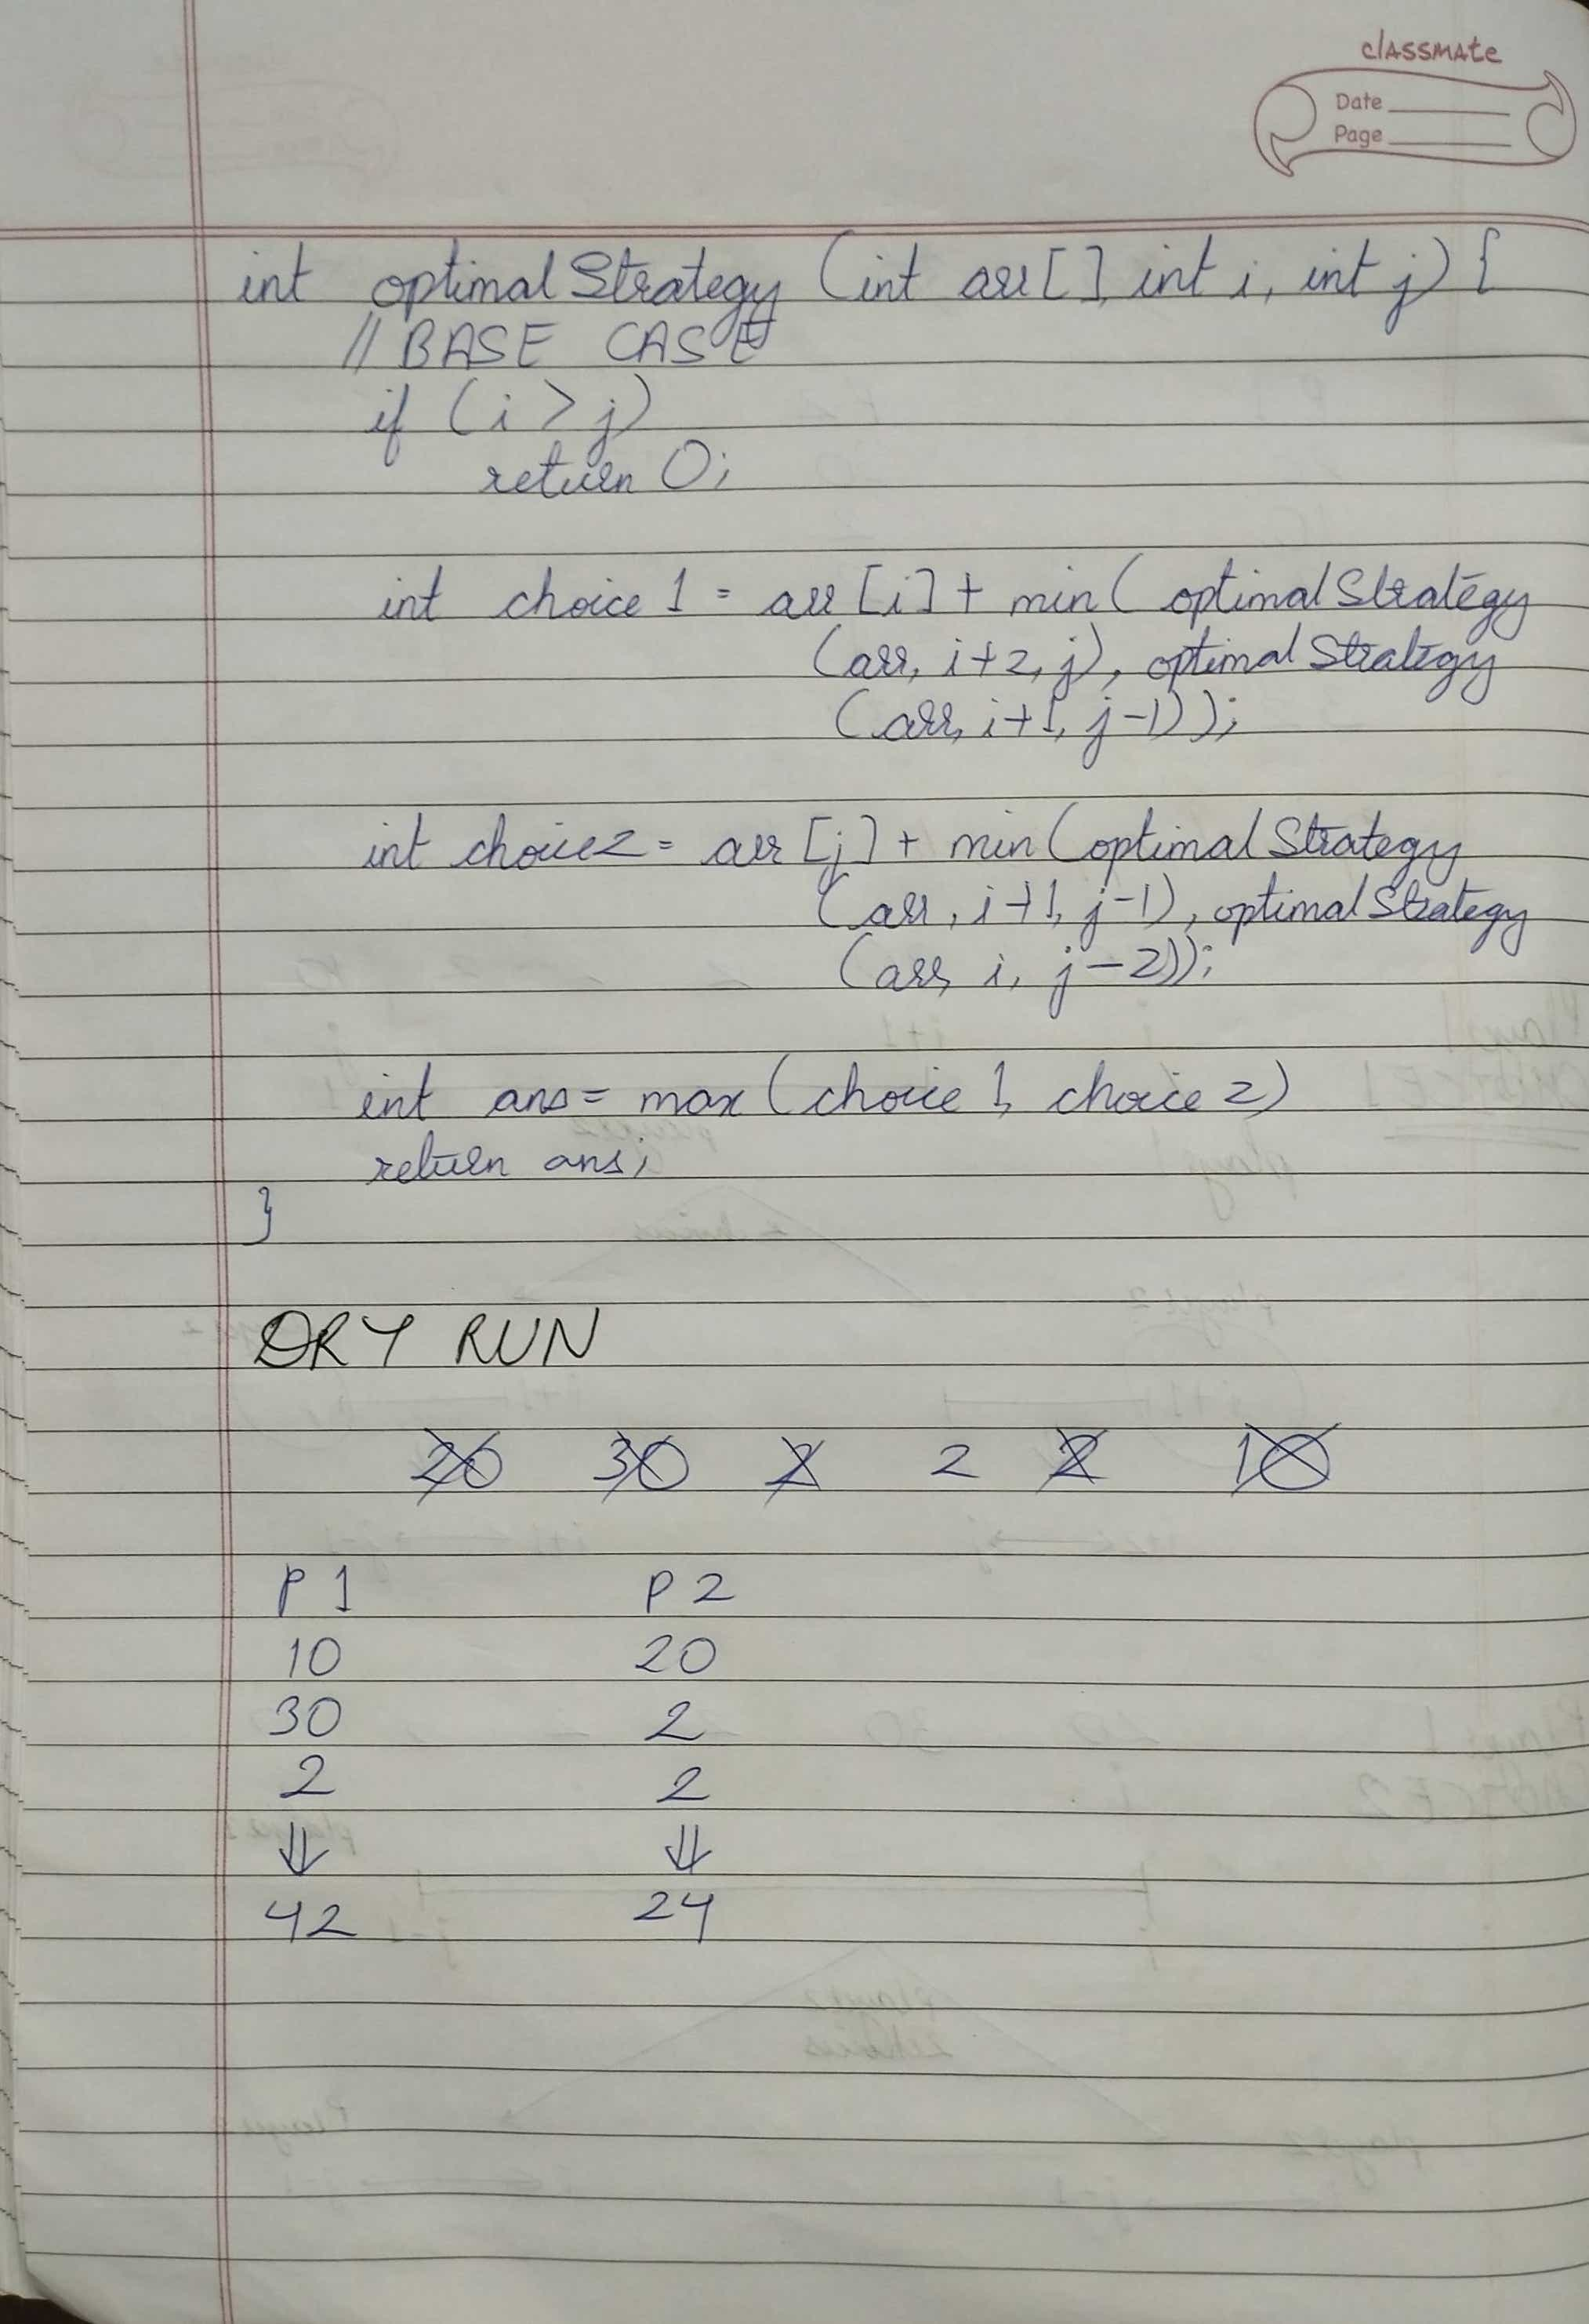 classmate
Date
Page
int optimalStrategy (int arr[], int i, int j) {
// BASE CASE
if (i > j)
return 0;
int choice 1 = arr [i] + min( optimalStrategy
(arr, i+2, j), optimalStrategy
(arr, i+1, j-1));
int choice2 = arr [j] + min(optimalStrategy
(arr, i+1, j-1), optimalStrategy
(arr, i, j-2));
int ans = max (choice 1, choice 2)
return ans;
}
DRY RUN
20 30 2 2 2 10
P 1 P 2
10 20
30 2
2 2
⇓ ⇓
42 24